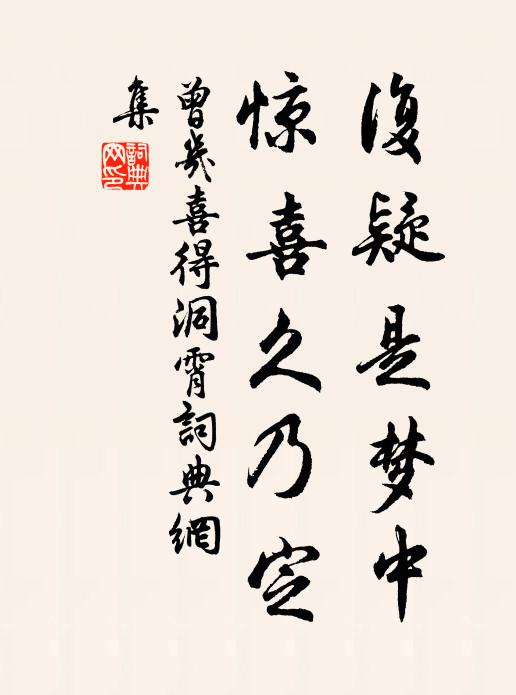 復疑是梦中
惊喜久乃定
曾几喜得洞霄詞典網
集
詞典网印